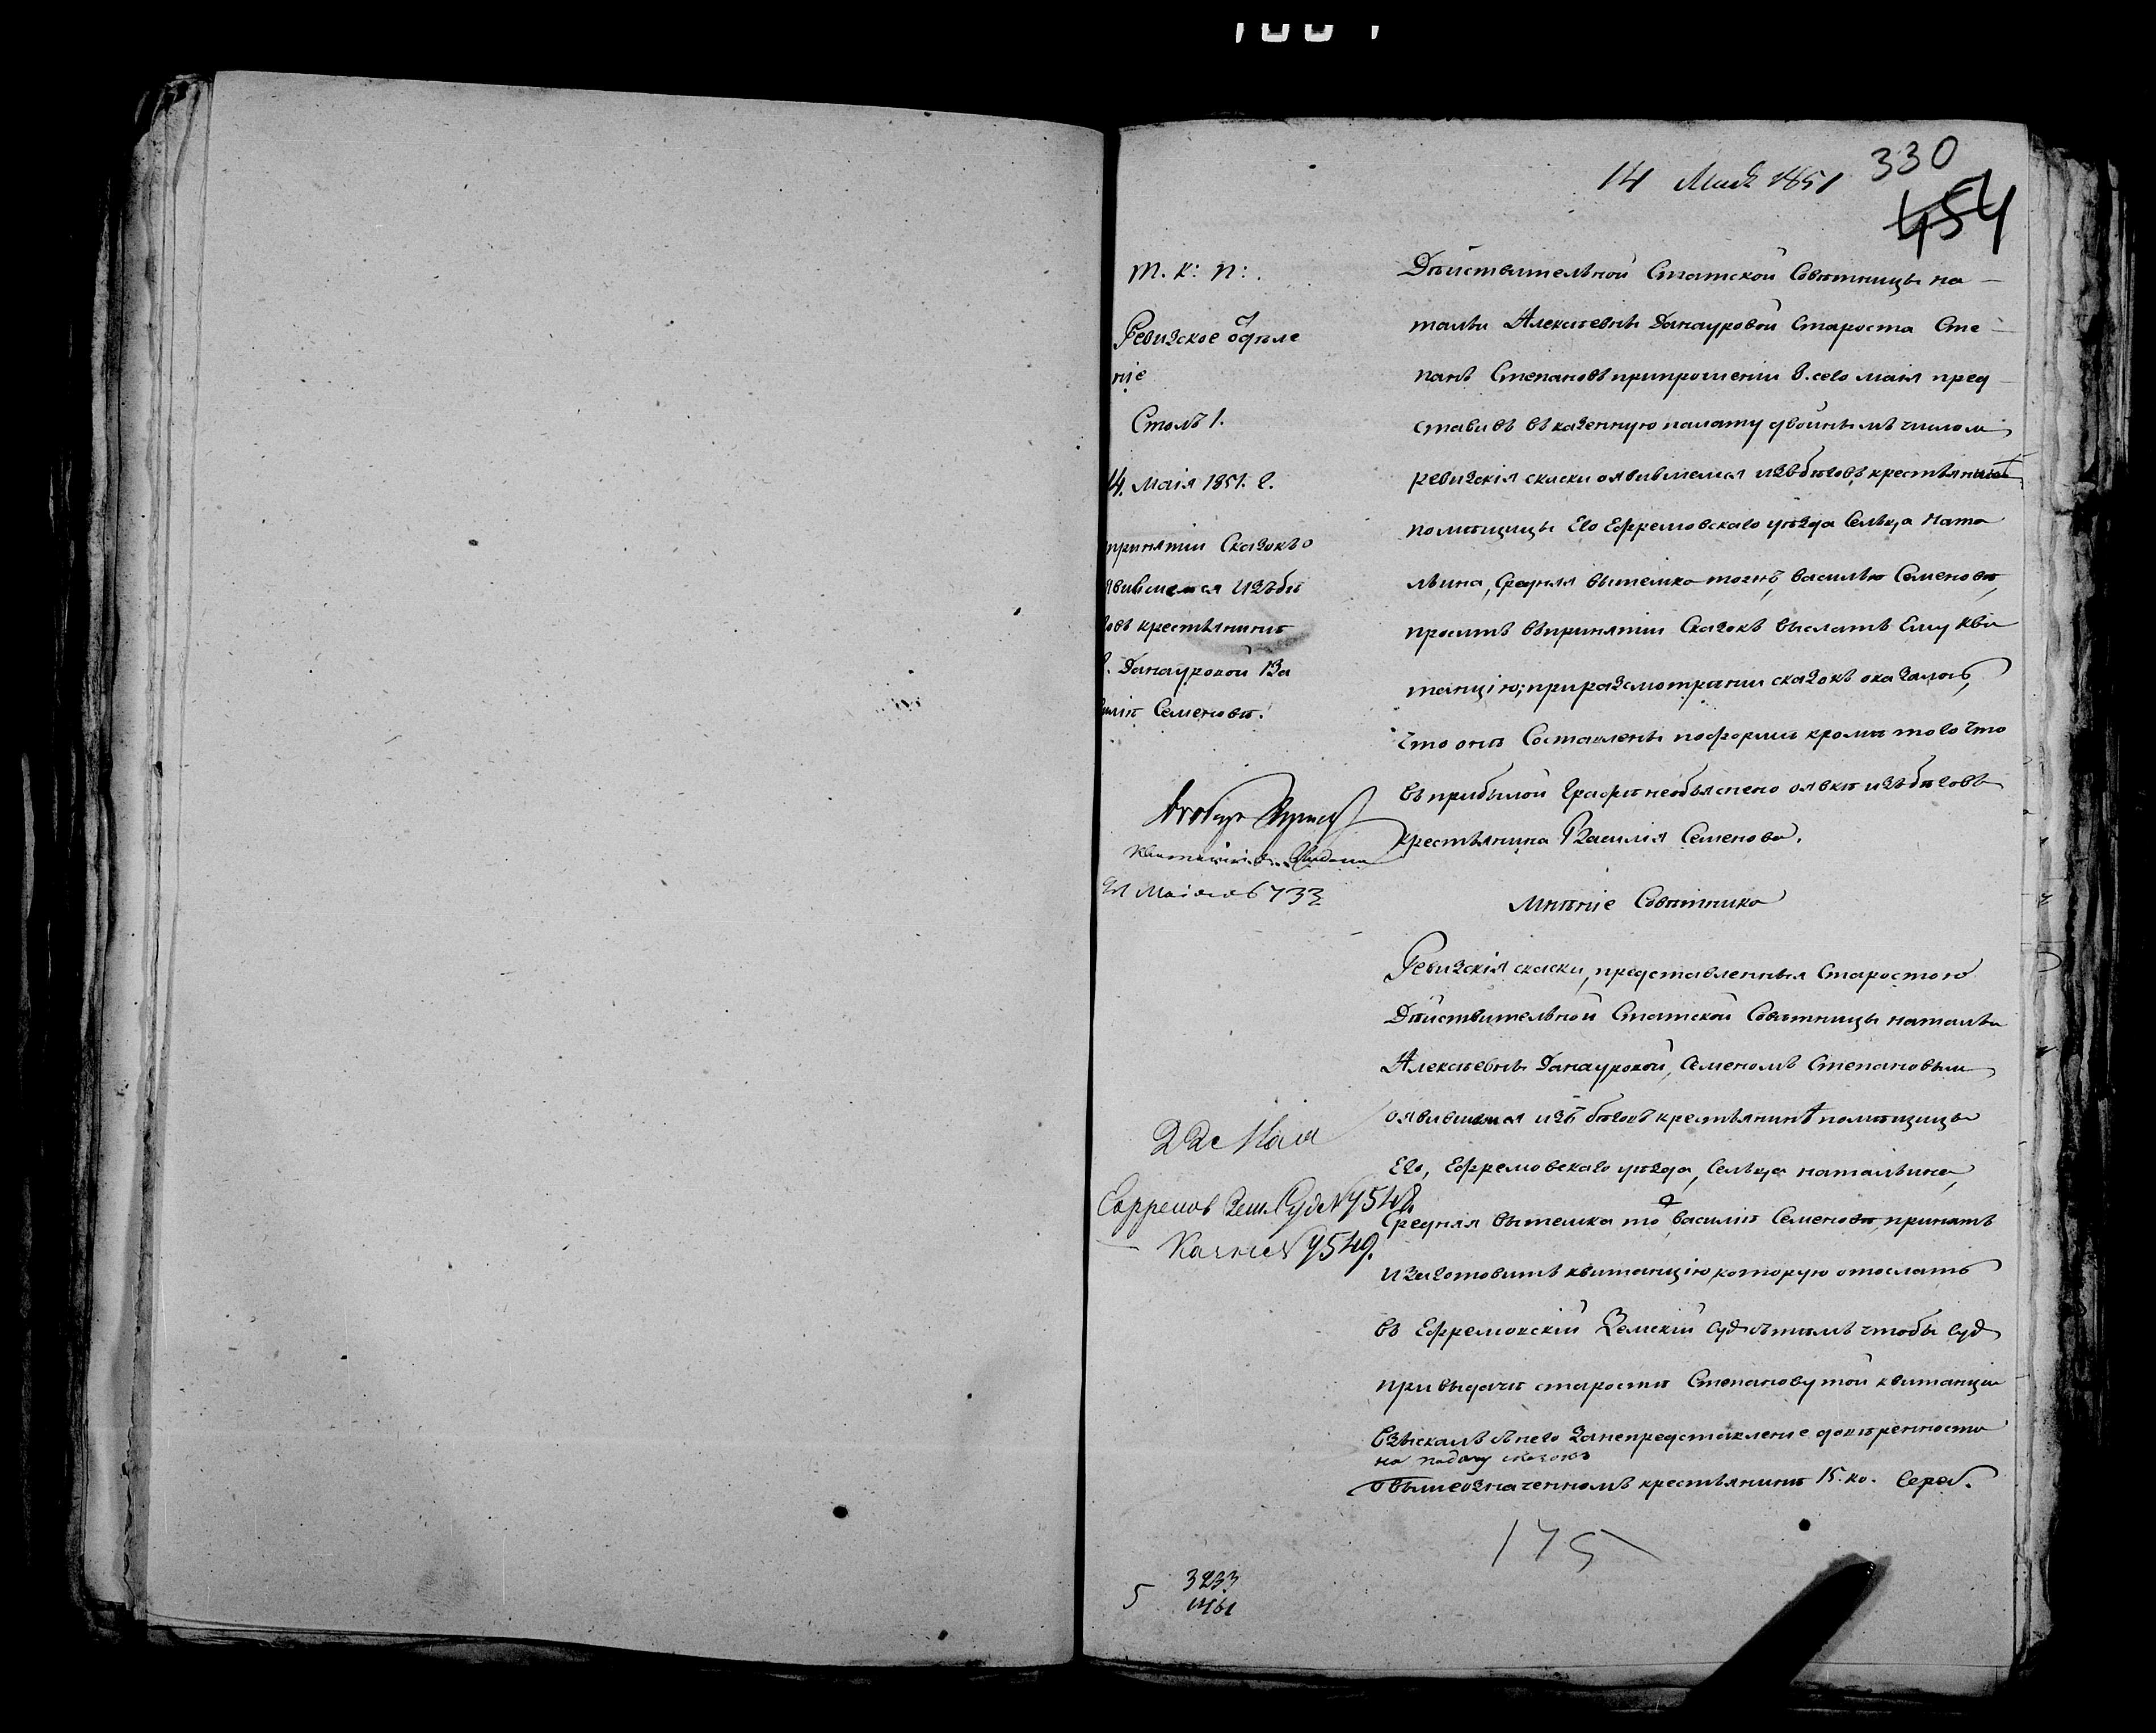 330
14 Мая 1851
454
Т. К: П:
Ревизское отделе
ніе
Столъ 1.
14. Маія 1851. г.
принятіи Сказокъ о
явившемся изъ бѣ
говъ крестьянинѣ
г. Данауровой Ва
силіѣ Семеновѣ.
21 Маія 6733
22 Мая
Ефремов Зем. Суд № 7548.
Казнач № 7549.
3233
5
1461
Дѣйствительной Статской Совѣтницы На
тальи Алексѣевны Данауровой Староста Сте
панъ Степановъ припрошеніи 8. сего маія пред
ставивъ въ казенную палату двойнымъ числом
ревизскія скаски оявившемся изъ бѣговъ крестьянинѣ
помѣщицы Его Ефремовскаго уѣзда Сельца Ната
льина, Средняя вытемка тожъ, Васильѣ Семеновѣ,
проситъ въпринятіи Сказокъ выслать Ему кви
танцію; приразсмотрѣніи сказокъ оказалось,
что онѣ Составлены поформѣ кромѣ того что
въ прибылой графѣ необъяснено оявкѣ изъ бѣговъ
крестьянина Василія Семенова.
Мнѣніе Совѣтника
Ревизскія скаски, представленныя Старостою
Дѣйствительной Статской Совѣтницы Натальи
Алексѣевны Данауровой, Семеномъ Степановым
оявившемся изъ бѣговъ крестьянинѣ помѣщицы
Его, Ефремовскаго уѣзда, Сельца Натальина,
Средняя вытемка то ж Василіѣ Семеновѣ, принять
и заготовить квитанцію которую отослать
въ Ефремовскій Земскій Суд стѣмъ чтобы Суд
при выдачѣ старостѣ Степанову той квитанціи
взыскалъ снего занепредставленіе довѣренности
на подачу сказокъ
о вышеозначенномъ крестьянинѣ 15. ко. Сереб.
175